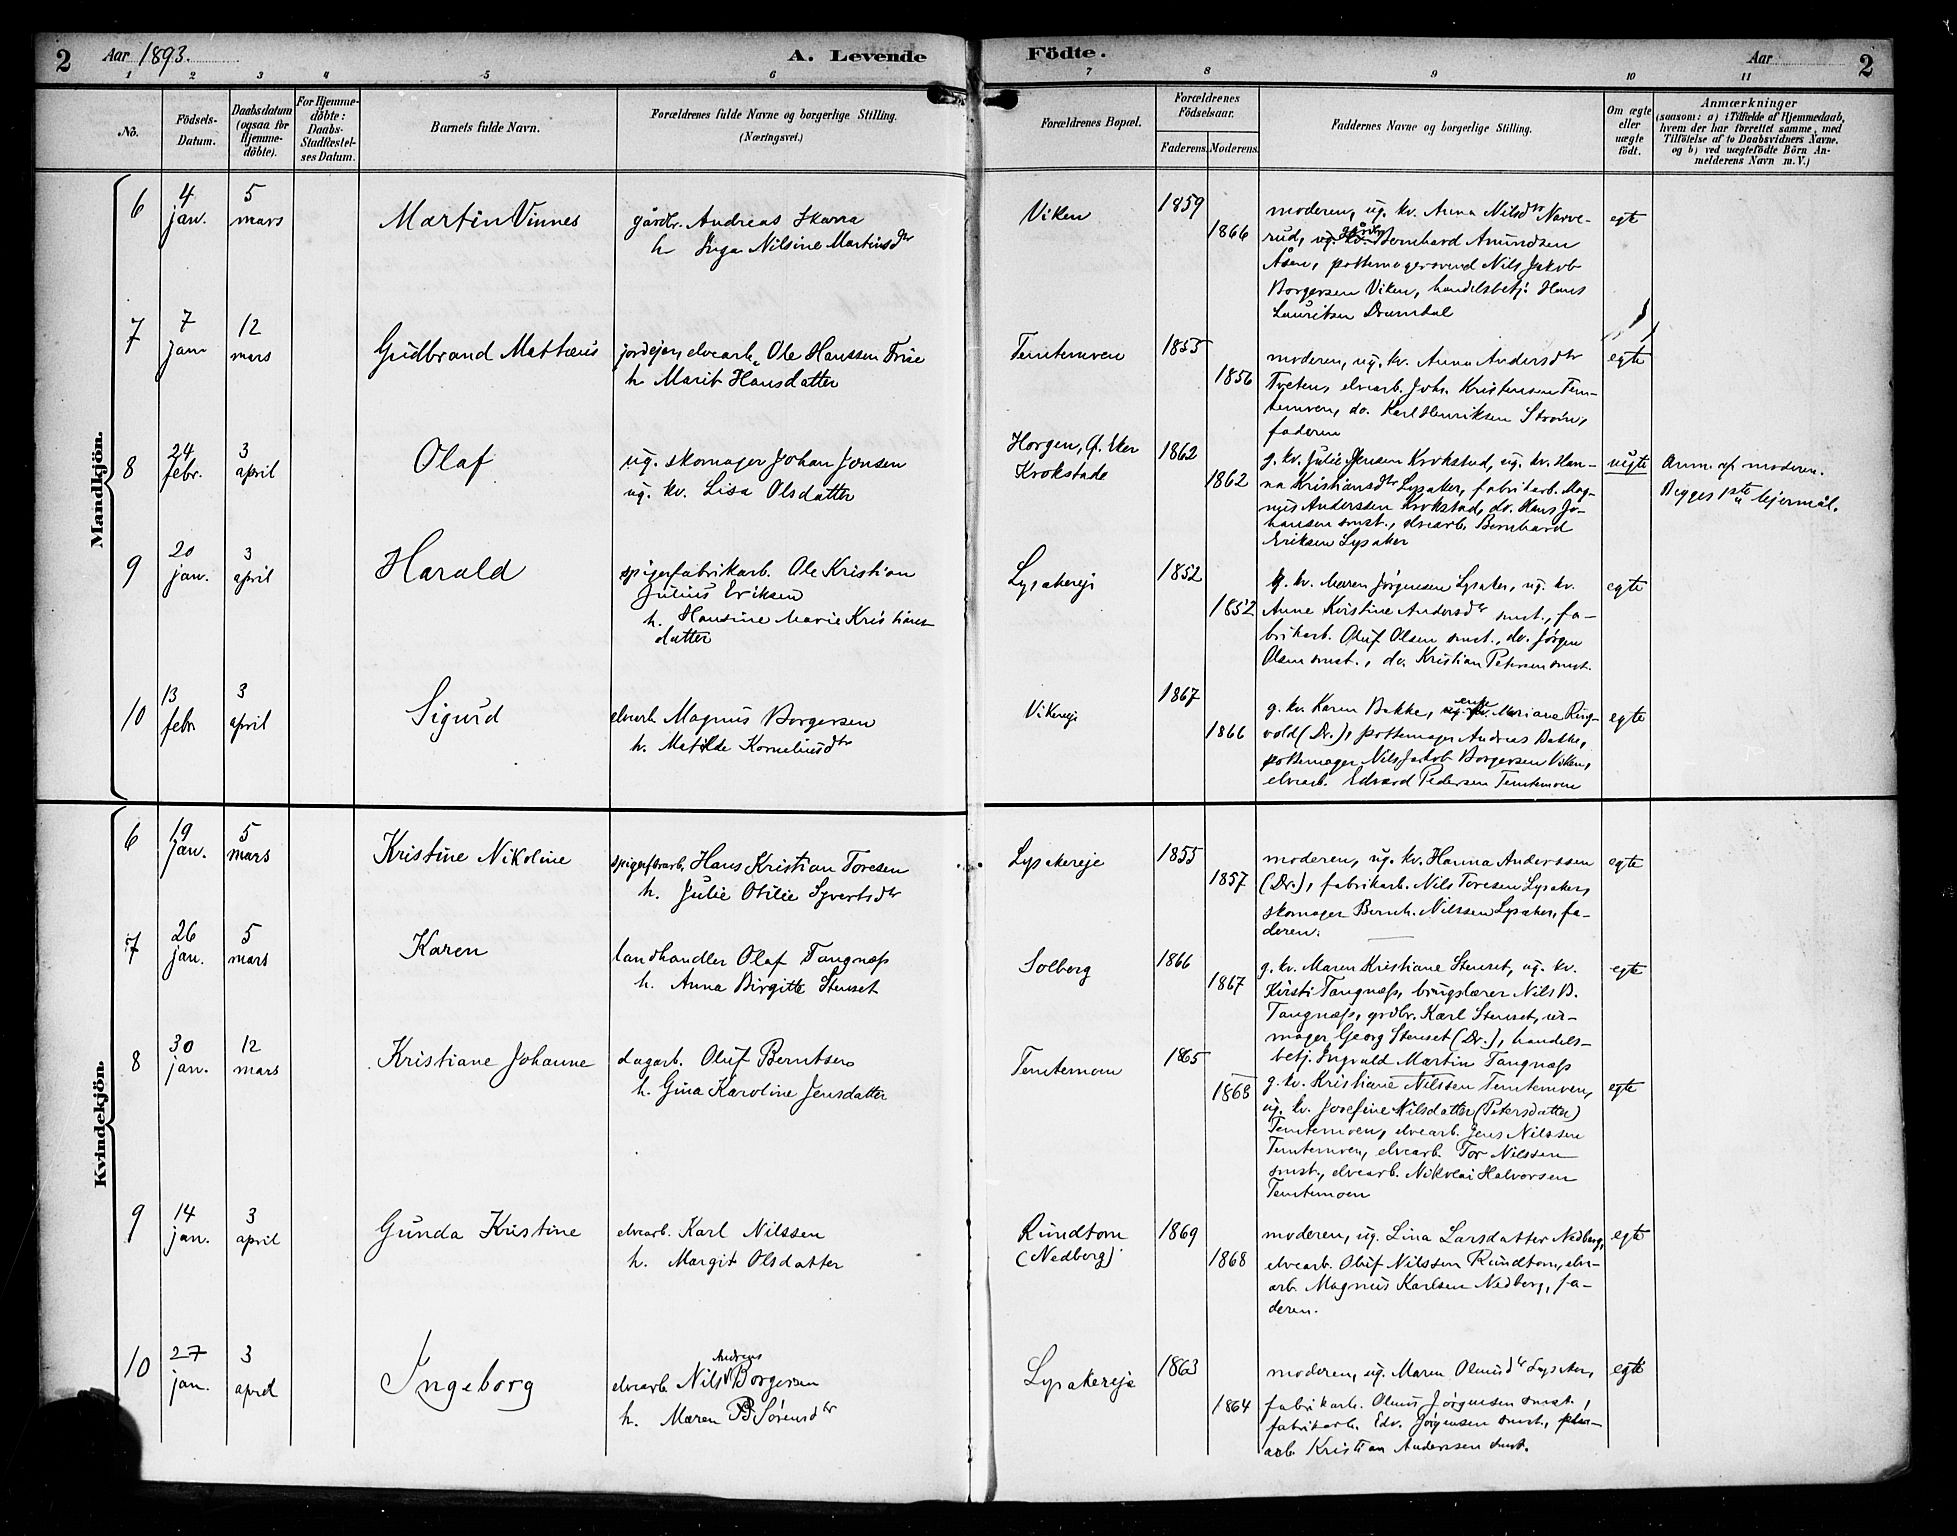 2 Aar 1893. A. Levende Födte. Aar 2
1 2 3 4 5 6 7 8 9 10 11
No.
Födsels-
Datum.
Daabsdatum
(ogsaa for
Hjemme-
döbte).
For Hjemme-
döbte:
Daabs-
Stadfæstel-
ses Datum.
Barnets fulde Navn.
Forældrenes fulde Navne og borgerlige Stilling.
(Næringsvei.)
Forældrenes Bopæl.
Forældrenes
Födselsaar.
Faderens. Moderens.
Faddernes Navne og borgerlige Stilling.
Om ægte
eller
uægte
födt.
Anmærkninger
(saasom: a) i Tilfælde af Hjemmedaab,
hvem der har forrettet samme, med
Tilföielse af to Daabsvidners Navne.
og b) ved uægtefödte Börn An-
melderens Navn m. V.)
Mandkjön.
6
4
jan.
5
mars
Martin Vinnes
gårdbr. Andreas Skarra
h Inga Nilsine Martinsdtr
Viken
1859
1866
moderen, ug. kv. Anna Nilsdtr Narve-
rud, gårdbr. Bernhard Amundsen
Åsen, pottemagersvend Nils Jakob
Borgersen Viken, handelsbetj. Hans
Lauritsen Dramdal
egte
7
7
jan
12
mars
Gudbrand Mathæus
jordejer, elvearb. Ole Hanssen Frise
h Marit Hansdatter
Temtemoen
1855
1856
moderen, ug. kv. Anna Andersdtr
Tveten, elvearb. Johs. Kristensen Tem-
temoen, do. Karl Henriksen Strøm,
faderen
egte
8
24
febr.
3
april
Olaf
ug. skomager Johan Jonsen
ug. kv. Lisa Olsdatter
Horgen, Ø. Eker
Krokstade
1862
1862
g. kv. Julie Jensen Krokstad, ug. kv. Han-
na Kristiansdtr Lysaker, fabrikarb. Mag-
nus Anderssen Krokstad, do. Hans Jo-
hansen smst., elvearb. Bernhard
Eriksen Lysaker
uegte
Anm. af moderen.
Begges 1ste lejermål.
9
20
jan.
3
april
Harald
spigerfabrikarb. Ole Kristian
Julius Eriksen
h. Hansine Marie Kristians-
datter
Lysakerejr
1852
1852
g. kv. Maren Jørgensen Lysaker, ug. kv.
Anne Kristine Andersdtr smst., fa-
brikarb. Oluf Olsen smst., do. Jørgen
Olsen smst., do. Kristian Petersen smst.
egte
10
13
febr
3
april
Sigurd
elvearb. Magnus Borgersen
h. Matilde Korneliusdtr
Vikerejr
1867
1866
g. kv Karen Bakke, enke Mariane Ring-
vold (Dr.), pottemager Andreas Bakke,
pottemager Nils Jakob Borgersen Viken,
elvearb. Edvard Pedersen Temtemoen
egte
Kvindekjön.
6
19
jan.
5
mars
Kristine Nikoline
Hans Kristian Toresen
h. Julie Otilie Syvertsdtr
Lysakereje
1855
1857
moderen, ug. kv. Hanna Anderssen
(Dr.), fabrikarb. Nils Toresen Lysaker,
skomager Bernh. Nilssen Lysaker, fa-
deren.
egte
7
26
jan.
5
mars
Karen
landhandler Olaf Tangnæss
h. Anna Birgitte Stenset
Solberg
1866
1867
g. kv. Maren Kristiane Stenset, ug. kv.
Kirsti Tangnæss, brugslærer Nils B.
Tangnæss, grdbr. Karl Stenset, ur-
mager Georg Stenset (Dr.), handels-
betj. Ingvald Martin Tangnæss
egte
8
30
jan.
12
mars
Kristiane Johanne
dagarb. Oluf Berntsen
h. Gina Karoline Jensdatter
Temtemoen
1865
1868
g. kv. Kristiane Nilssen Temtemoen,
ug. kv. Josefine Nilsdatter (Petersdatter)
Temtemoen, elvearb. Jens Nilssen
Temtemoen, elvearb. Tor Nilssen
smst., elvearb. Nikolai Halvorsen
Temtemoen
egte
9
14
jan.
3
april
Gunda Kristine
elvearb. Karl Nilssen
h. Margit Olsdatter
Rundtom
(Nedberg)
1869
1868
moderen, ug. Lina Larsdatter Nedberg,
elvearb. Oluf Nilssen Rundtom, elve-
arb. Magnus Karlsen Nedberg, fa-
deren.
egte
10
27
jan.
3
april
Ingeborg
Andreas
elvearb. Nils Borgersen
h. Maren B Sørensdtr
Lysakereje
1863
1864
moderen, ug. Maren Olausdtr Lysaker,
fabrikarb. Olaus Jørgensen smst.,
fabrikarb. Edv. Jørgensen smst.,
arb. Kristian Anderssen smst.
egte